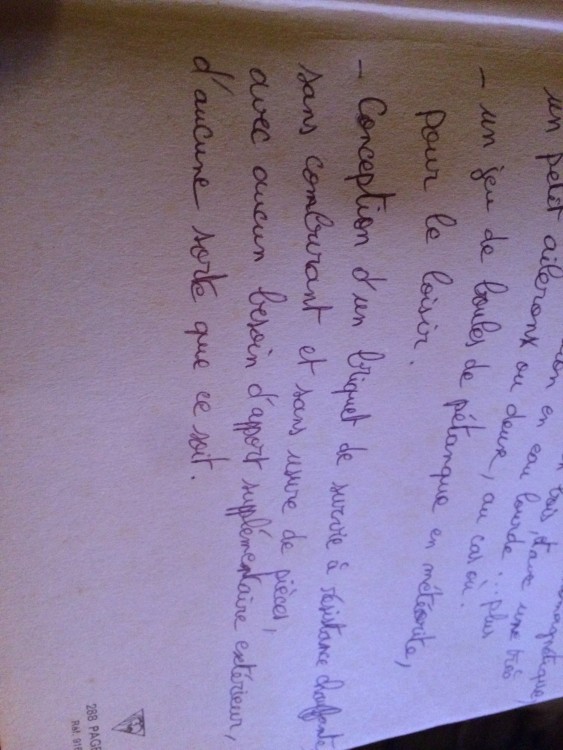 magnétique,
bas, avec une très
en eau lourde... Plus
un petit ailerons ou deux, au cas où.
- un jeu de boules de pétanque en météorite,
pour le loisir.
- Conception d'un briquet de survie à résistance chauffante
sans comburant et sans usure de pièces,
avec aucun besoin d'apport supplémentaire extérieur,
d'aucune sorte que ce soit.
288 PAGE
Réf. 916